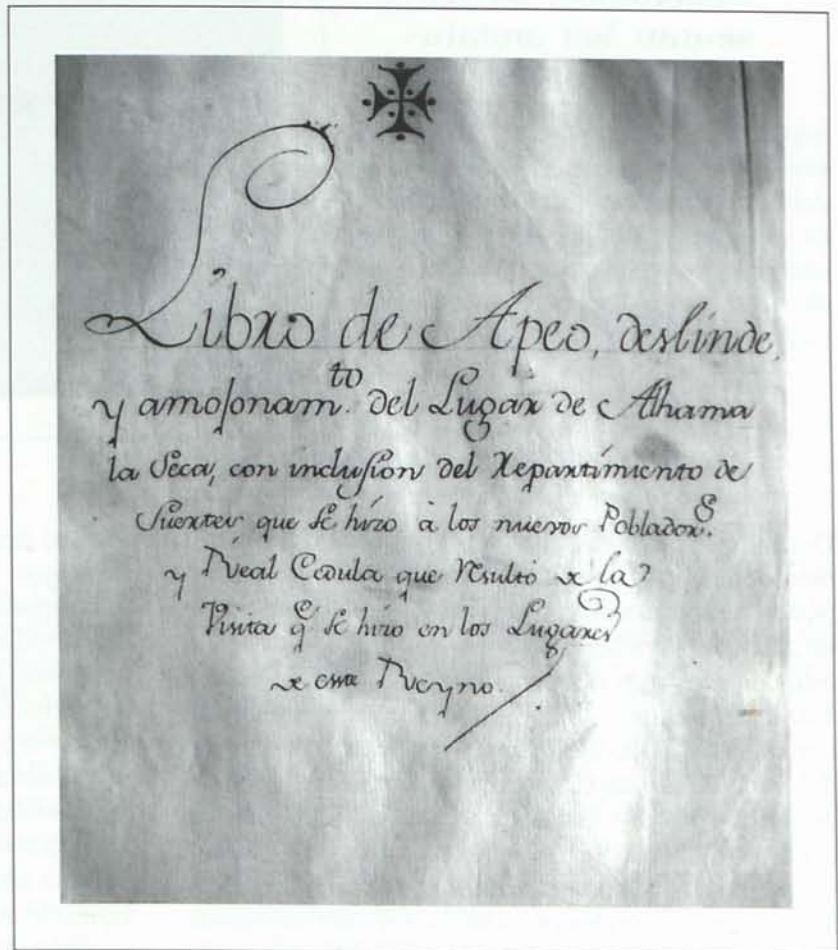 Libro de Apeo, deslinde,
y amojonam.to del Lugar de Alhama
la Seca, con inclusion del Repartimiento de
Suertes que se hizo à los nuevos Poblador.s
y Real Cedula que resultó de la
Visita q.e se hizo en los Lugares
de este Reyno.